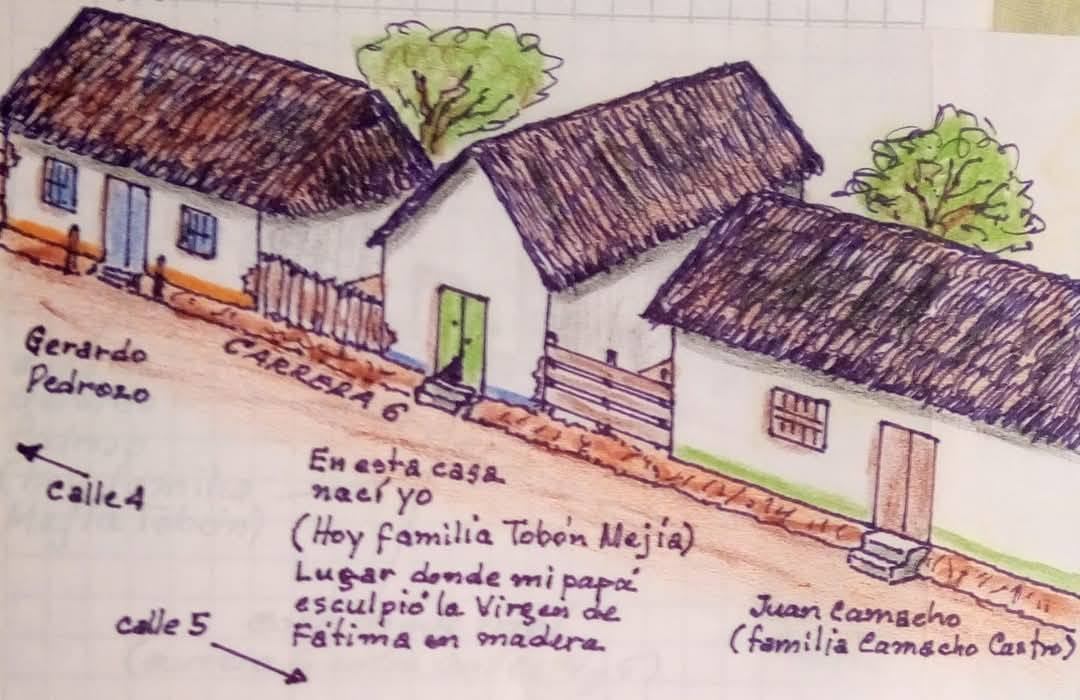 Gerardo
Pedrozo
CARRERA 6
calle 4
En esta casa
nací yo
(Hoy familia Tobón Mejía)
Lugar donde mi papá
esculpió la Virgen de
Fátima en madera
calle 5
Juan Camacho
(familia Camacho Castro)